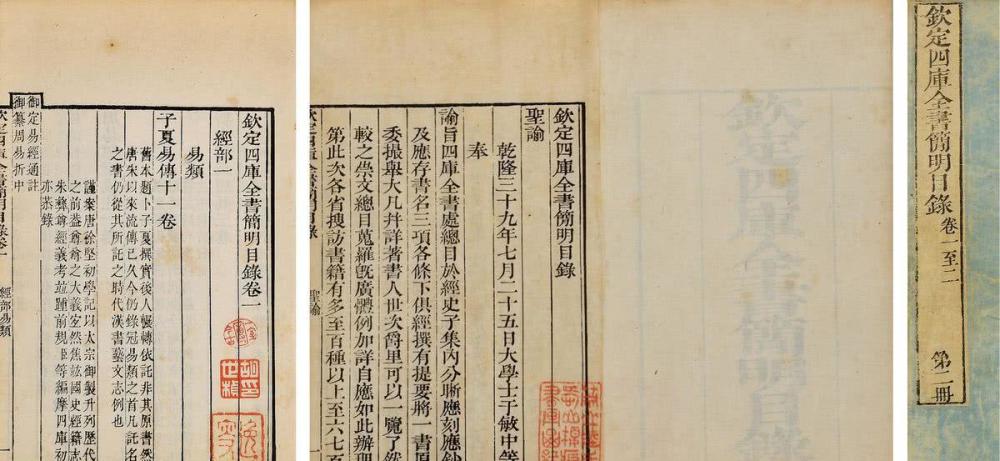 欽定四庫全書簡明目錄
卷一至二
第一冊
欽定四庫全書簡明目錄
聖諭
乾隆三十九年七月二十五日大學士于敏中等
奉
諭旨四庫全書處總目於經史子集內分晰應刻應鈔
及應存書名三項各條下俱經撰有提要將一書原
委撮舉大凡并詳著書人世次爵里可以一覽了然
較之崇文總目蒐羅旣廣體例加詳自應如此辦理
第此次各省搜訪書籍有多至百種以上至六七百
欽定四庫全書簡明目錄
聖諭
欽定四庫全書簡明目錄卷一
經部一
易類
子夏易傳十一卷
舊本題卜子夏撰實後人輾轉依託非其原書然
唐宋以來流傳已久今仍錄冠易類之首凡託名
之書仍從其所託之時代漢書藝文志例也
謹案唐徐堅初學記以太宗御製升列歷代
之前蓋尊尊之大義至焦竑國史經籍志
朱彝尊經義考並踵前規臣等編摩四庫初
亦恭錄
御定易經通註
御纂周易折中
欽定四庫全書簡明目錄卷一
經部易類